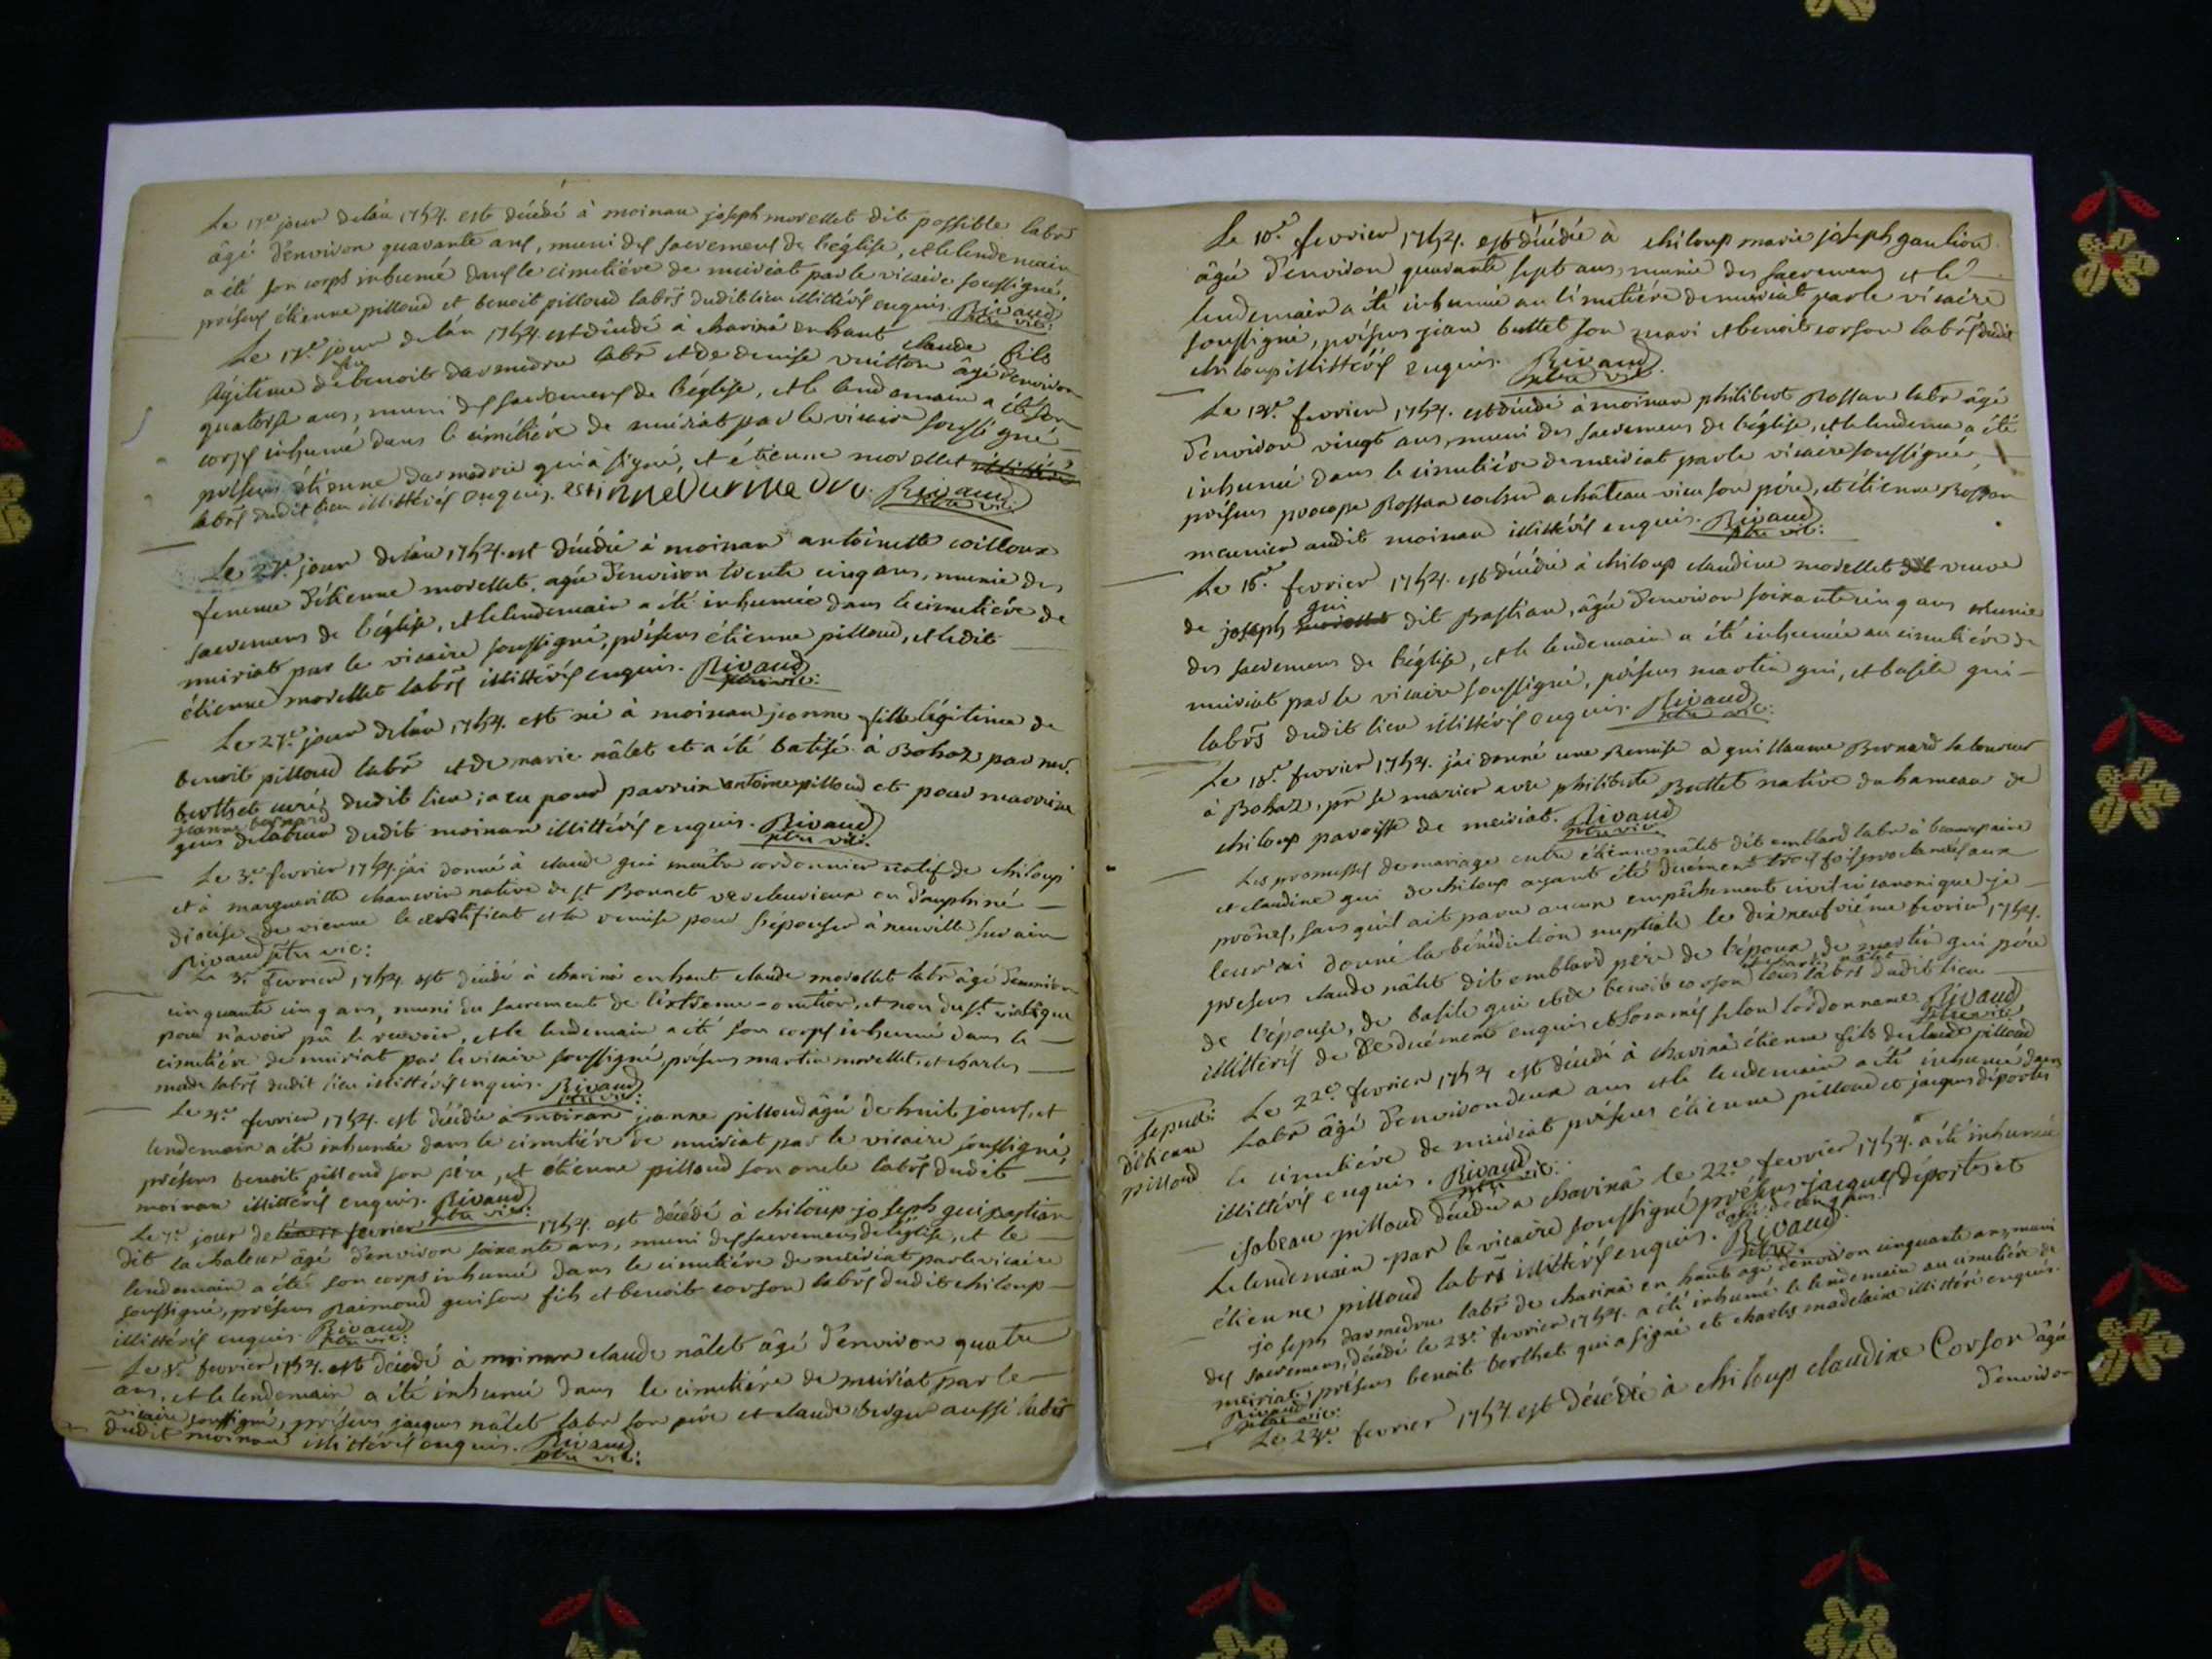 Le 17e jour de lan 1754. est décédé à moinan joseph morellet dit possible labr
âgé d'environ quarante ans, muni des sacremens de l'église, et le lendemain
a été son corps inhumé dans le cimetiére de meiriat par le vicaire soussigné,
présens étienne pilloud et benoit pilloud labrs dudit lieu illittérés enquis. Rivaud
ptre vic:
Le 17e jour de lan 1754. est décédé à charinâ en haut claude fils
légitime de benoit darmedru labr et de denise vuitton âgé d'environ
quatorse ans, muni des sacremens de l'église, et le lendemain a été son
corps inhumé dans le cimétiére de meiriat par le vicaire soussigné
présens étienne darmedru qui à signé, et étienne morellet
labrs dudit lieu illittérés enquis. Rivaud
ptre vic:
Le jour de lan 1754. est décédée à moinan antoinette
femme d'étienne morellet, agée d'environ trente cinq ans, munie des
sacremens de l'église, et le lendemain a été inhumée dans le cimetiére de
meiriat par le vicaire soussigné, présens étienne pilloud, et ledit
étienne morellet labrs illittérés enquis. Rivaud
ptre vic:
Le 27e jour de lan 1754. est né à moinan jeanne fille légitime de
benoit pilloud labr et de marie nâlet et a été batisé à Bohaz par mr.
berthet curé dudit lieu; a eu pour parrein antoine pilloud et pour marreine
jeanne bernard
gens de labeur dudit moinan illittérés enquis. Rivaud
ptre vic:
Le 3e fevrier 1754. jai donné à claude gui maître cordonnier natif de chiloup
et à margueritte native de st Bonnet en dauphiné
diocése de vienne le certificat et la remise pour s'épouser à neuville sur ain
Rivaud ptre vic:
Le 3e fevrier 1754. est décédé à charinâ en haut claude morellet labr âgé d'environ
cinquante cinq ans, muni du sacrement de l'extreme-onction, et non du st. viatique
pour n'avoir pû le recevoir, et le lendemain a été son corps inhumé dans le
cimetiére de meiriat par le vicaire soussigné présens martin morellet, et charles
labrs dudit lieu illittérés enquis. Rivaud
ptre vic:
Le 4e fevrier 1754. est décédée à moinan jeanne pilloud âgée de huit jours, et
lendemain a été inhumée dans le cimetiére de meiriat par le vicaire soussigné,
présens benoit pilloud son pére, et étienne pilloud son oncle labrs dudit
moinan illittérés enquis. Rivaud
ptre vic:
Le 7e jour de fevrier 1754. est décédé à chiloup joseph gui bastian
dit la chaleur âgé d'environ soixente ans, muni des sacremens de l'église, et le
lendemain a été son corps inhumé dans le cimetiére de meiriat par le vicaire
soussigné, présens Raimond gui son fils et benoit corson labrs dudit chiloup
illittérés enquis. Rivaud
ptre vic:
Le 8e fevrier 1754. est décédé à moinan claude nâlet âgé d'environ quatre
ans, et le lendemain a été inhumé dans le cimetiére de meiriat par le
vicaire soussigné, présens jacques nâlet labr son pére et claude aussi labr
dudit moinan illittérés enquis. Rivaud
ptre vic:
Le 10e fevrier 1754. est décédée à chiloup marie joseph
âgée d'environ quarante sept ans, munie des sacremens et le
lendemain a été inhumée au cimetiére de meiriat par le vicaire
soussigné, présens jean buttet son mari et benoit corson labrs dudit
chiloup illittérés enquis. Rivaud
ptre vic.
Le fevrier 1754. est décédé à moinan philibert Rossan labr âgé
d'environ vingt ans, muni des sacremens de l'église, et le lendemain a été
inhumé dans le cimetiére de meiriat par le vicaire soussigné,
présens procope Rossan cocher a château-vieu son pére, et étienne Rossan
meunier audit moinan illittérés enquis. Rivaud
ptre vic:
Le 16e fevrier 1754. est décédée à chiloup claudine morellet veuve
de joseph gui dit Bastian, âgée d'environ soixante cinq ans munie
des sacremens de l'église, et le lendemain a été inhumée au cimetiére de
meiriat par le vicaire soussigné, présens martin gui, et basile gui
labrs dudit lieu illittérés enquis. Rivaud
ptre vic:
Le 18e fevrier 1754. jai donné une Remise à guillaume Bernard laboureur
à Bohaz, pr se marier avec philiberte Buttet native du hameau de
chiloup paroisse de meiriat. Rivaud
ptre vic
Les promesses de mariage entre étienne nâlet dit emblard labr à beaurepaire
et claudine gui de chiloup ayant été duément trois fois proclamées aux
prônes, sans qu'il ait paru aucun empêchement civil ni canonique je
leur ai donné la bénédiction nuptiale le dix neufviéme fevrier 1754.
presens claude nâlet dit emblard pére de l'époux, de martin gui pére
de l'épouse, de basile gui et de benoit corson tous labrs dudit lieu
illittérés de ce duément enquis et sommés selon l'ordonnance. Rivaud
ptre vic
Sepult:
d'étienne
pilloud
Le 22e fevrier 1754 est décédé à charinâ étienne fils de claude pilloud
Labr âgé d'environ deux ans et le lendemain a été inhumé dans
le cimetiére de meiriat présens étienne pilloud et jacques déportes
illittérés enquis. Rivaud
ptre vic:
isabeau pilloud décédée a charinâ le 22e fevrier 1754. a été inhumée
Le lendemain par le vicaire soussigné présens jacques déportes et
âgée de cinq ans.
étienne pilloud labrs illittérés enquis. Rivaud
ptre.
joseph darmedru labr de charinâ en haut agé d'environ cinquante ans, muni
des sacremens, décédé le 23e fevrier 1754. a été inhumé le lendemain au cimetiére de
meiriat; présens benoit berthet qui a signé et charles madelaine illittéré enquis.
Rivaud
ptre vic:
Le fevrier 1754 est décédée à chiloup claudine Corson âgée
d'environ